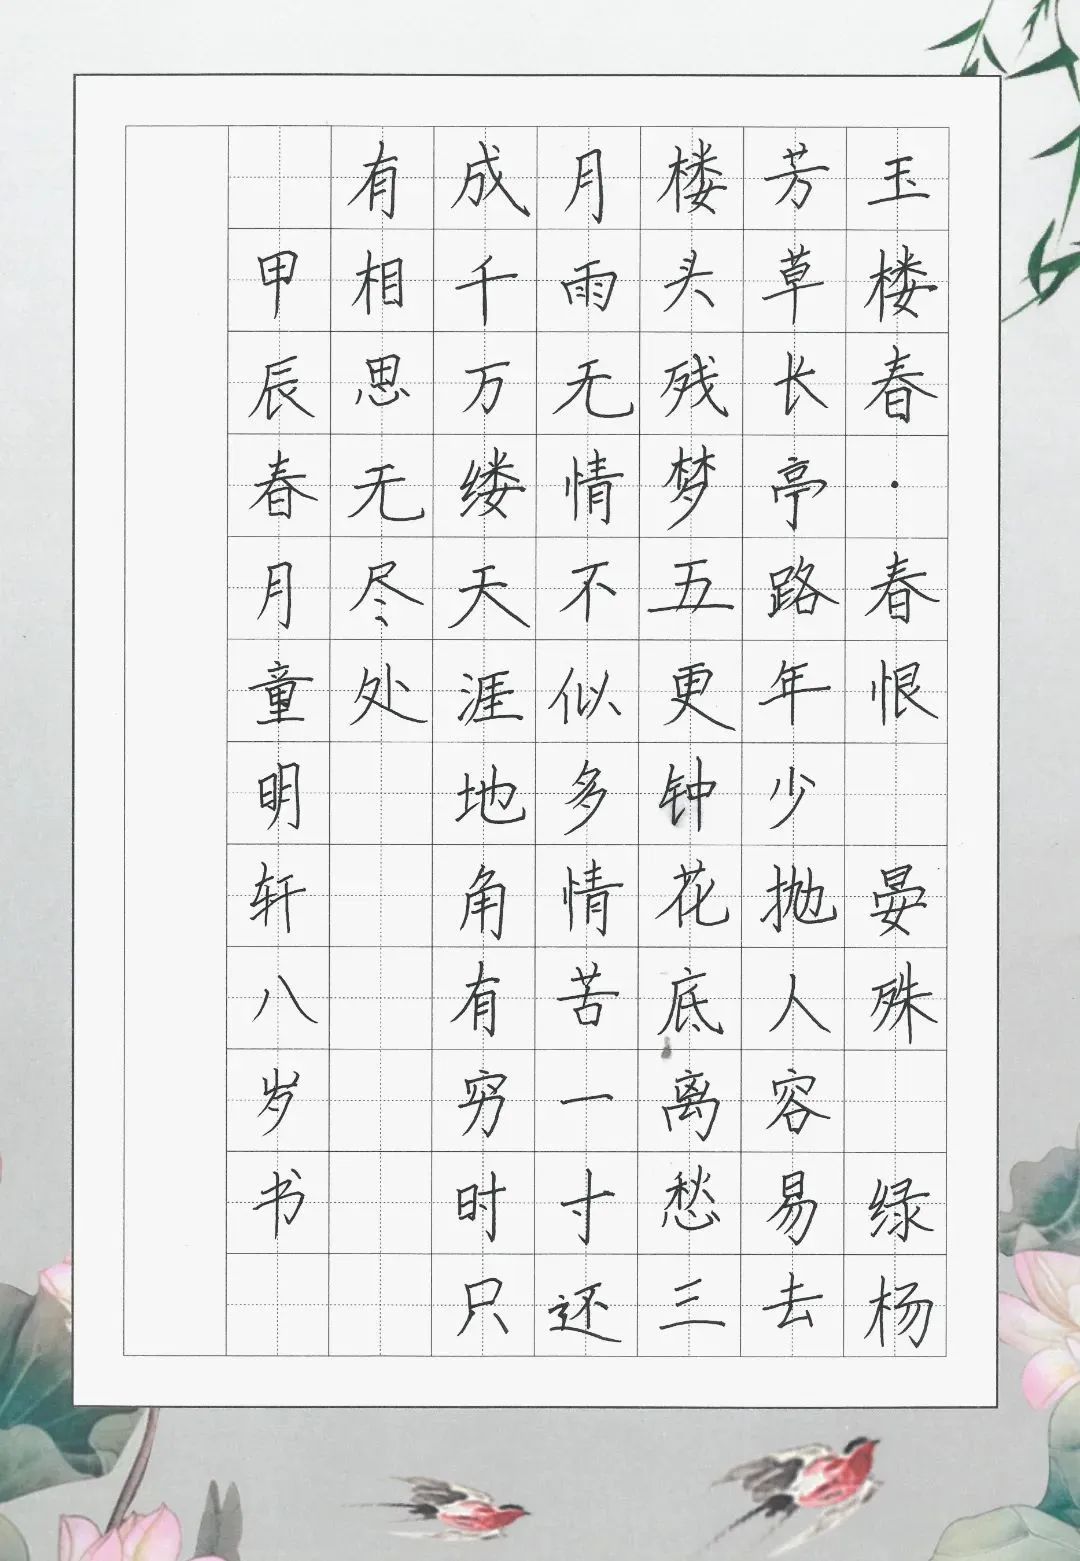 玉楼春·春恨 晏殊 绿杨
芳草长亭路年少抛人容易去
楼头残梦五更钟花底离愁三
月雨无情不似多情苦一寸还
成千万缕天涯地角有穷时只
有相思无尽处
甲辰春月童明轩八岁书